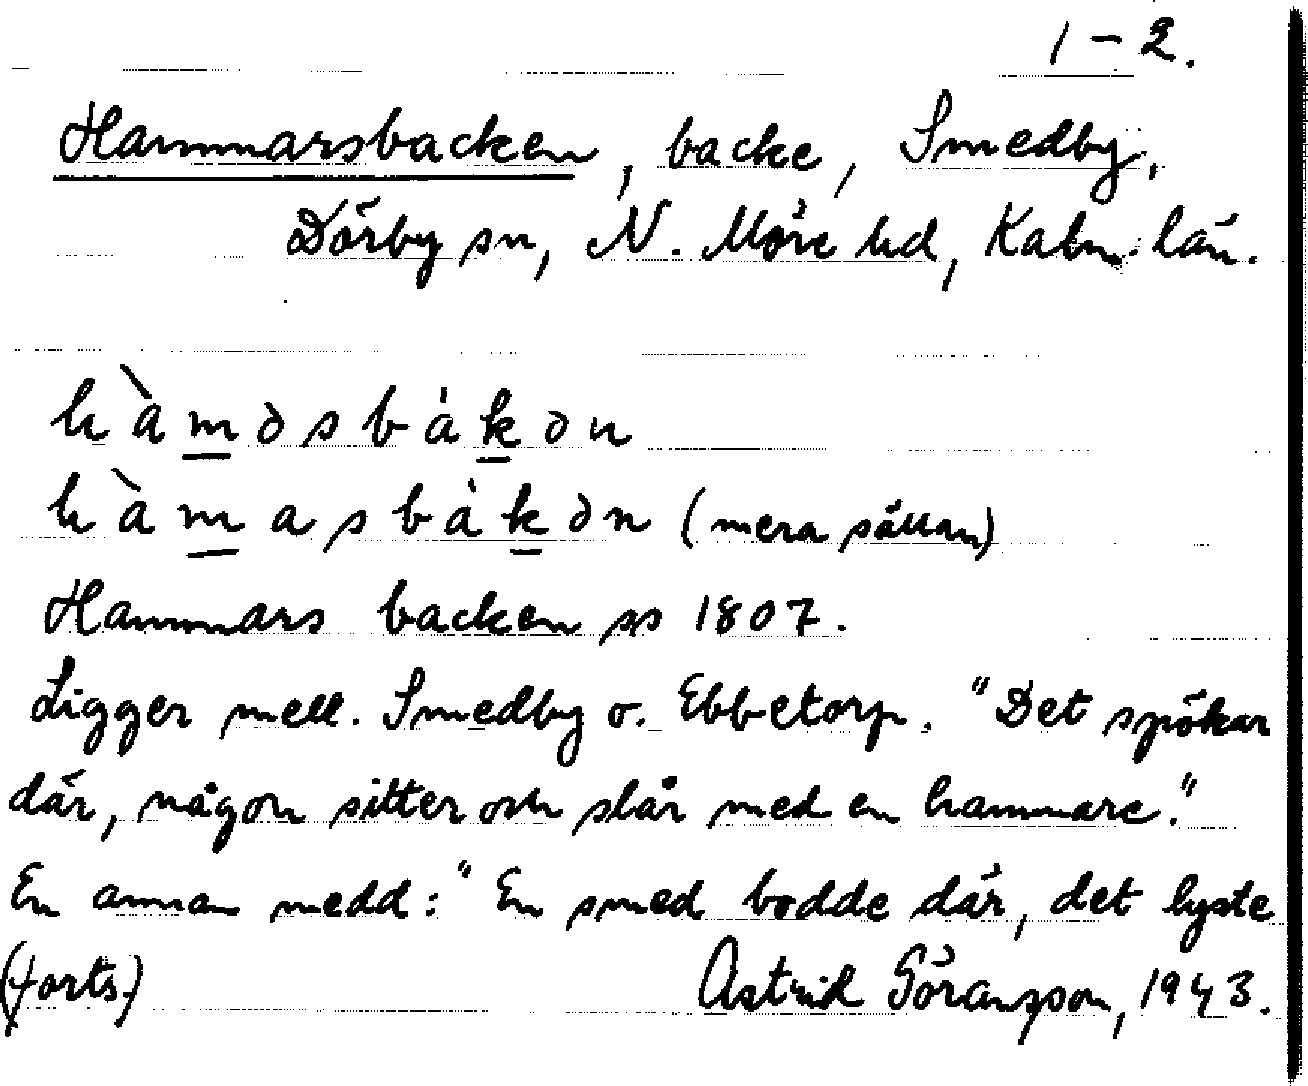 1-2.
Hammarsbacken, backe, Smedby,
Dörby sn, N. Möre hd, Kalm. län.
hàməsbákən
hàmasbákən (mera sällan)
Hammars backen ss 1807.
Ligger mell. Smedby o. Ebbetorp. "Det spökar
där, någon sitter och slår med en hammare."
En annan medd: "En smed bodde där, det lyste
(forts.) Astrid Göransson, 1943.